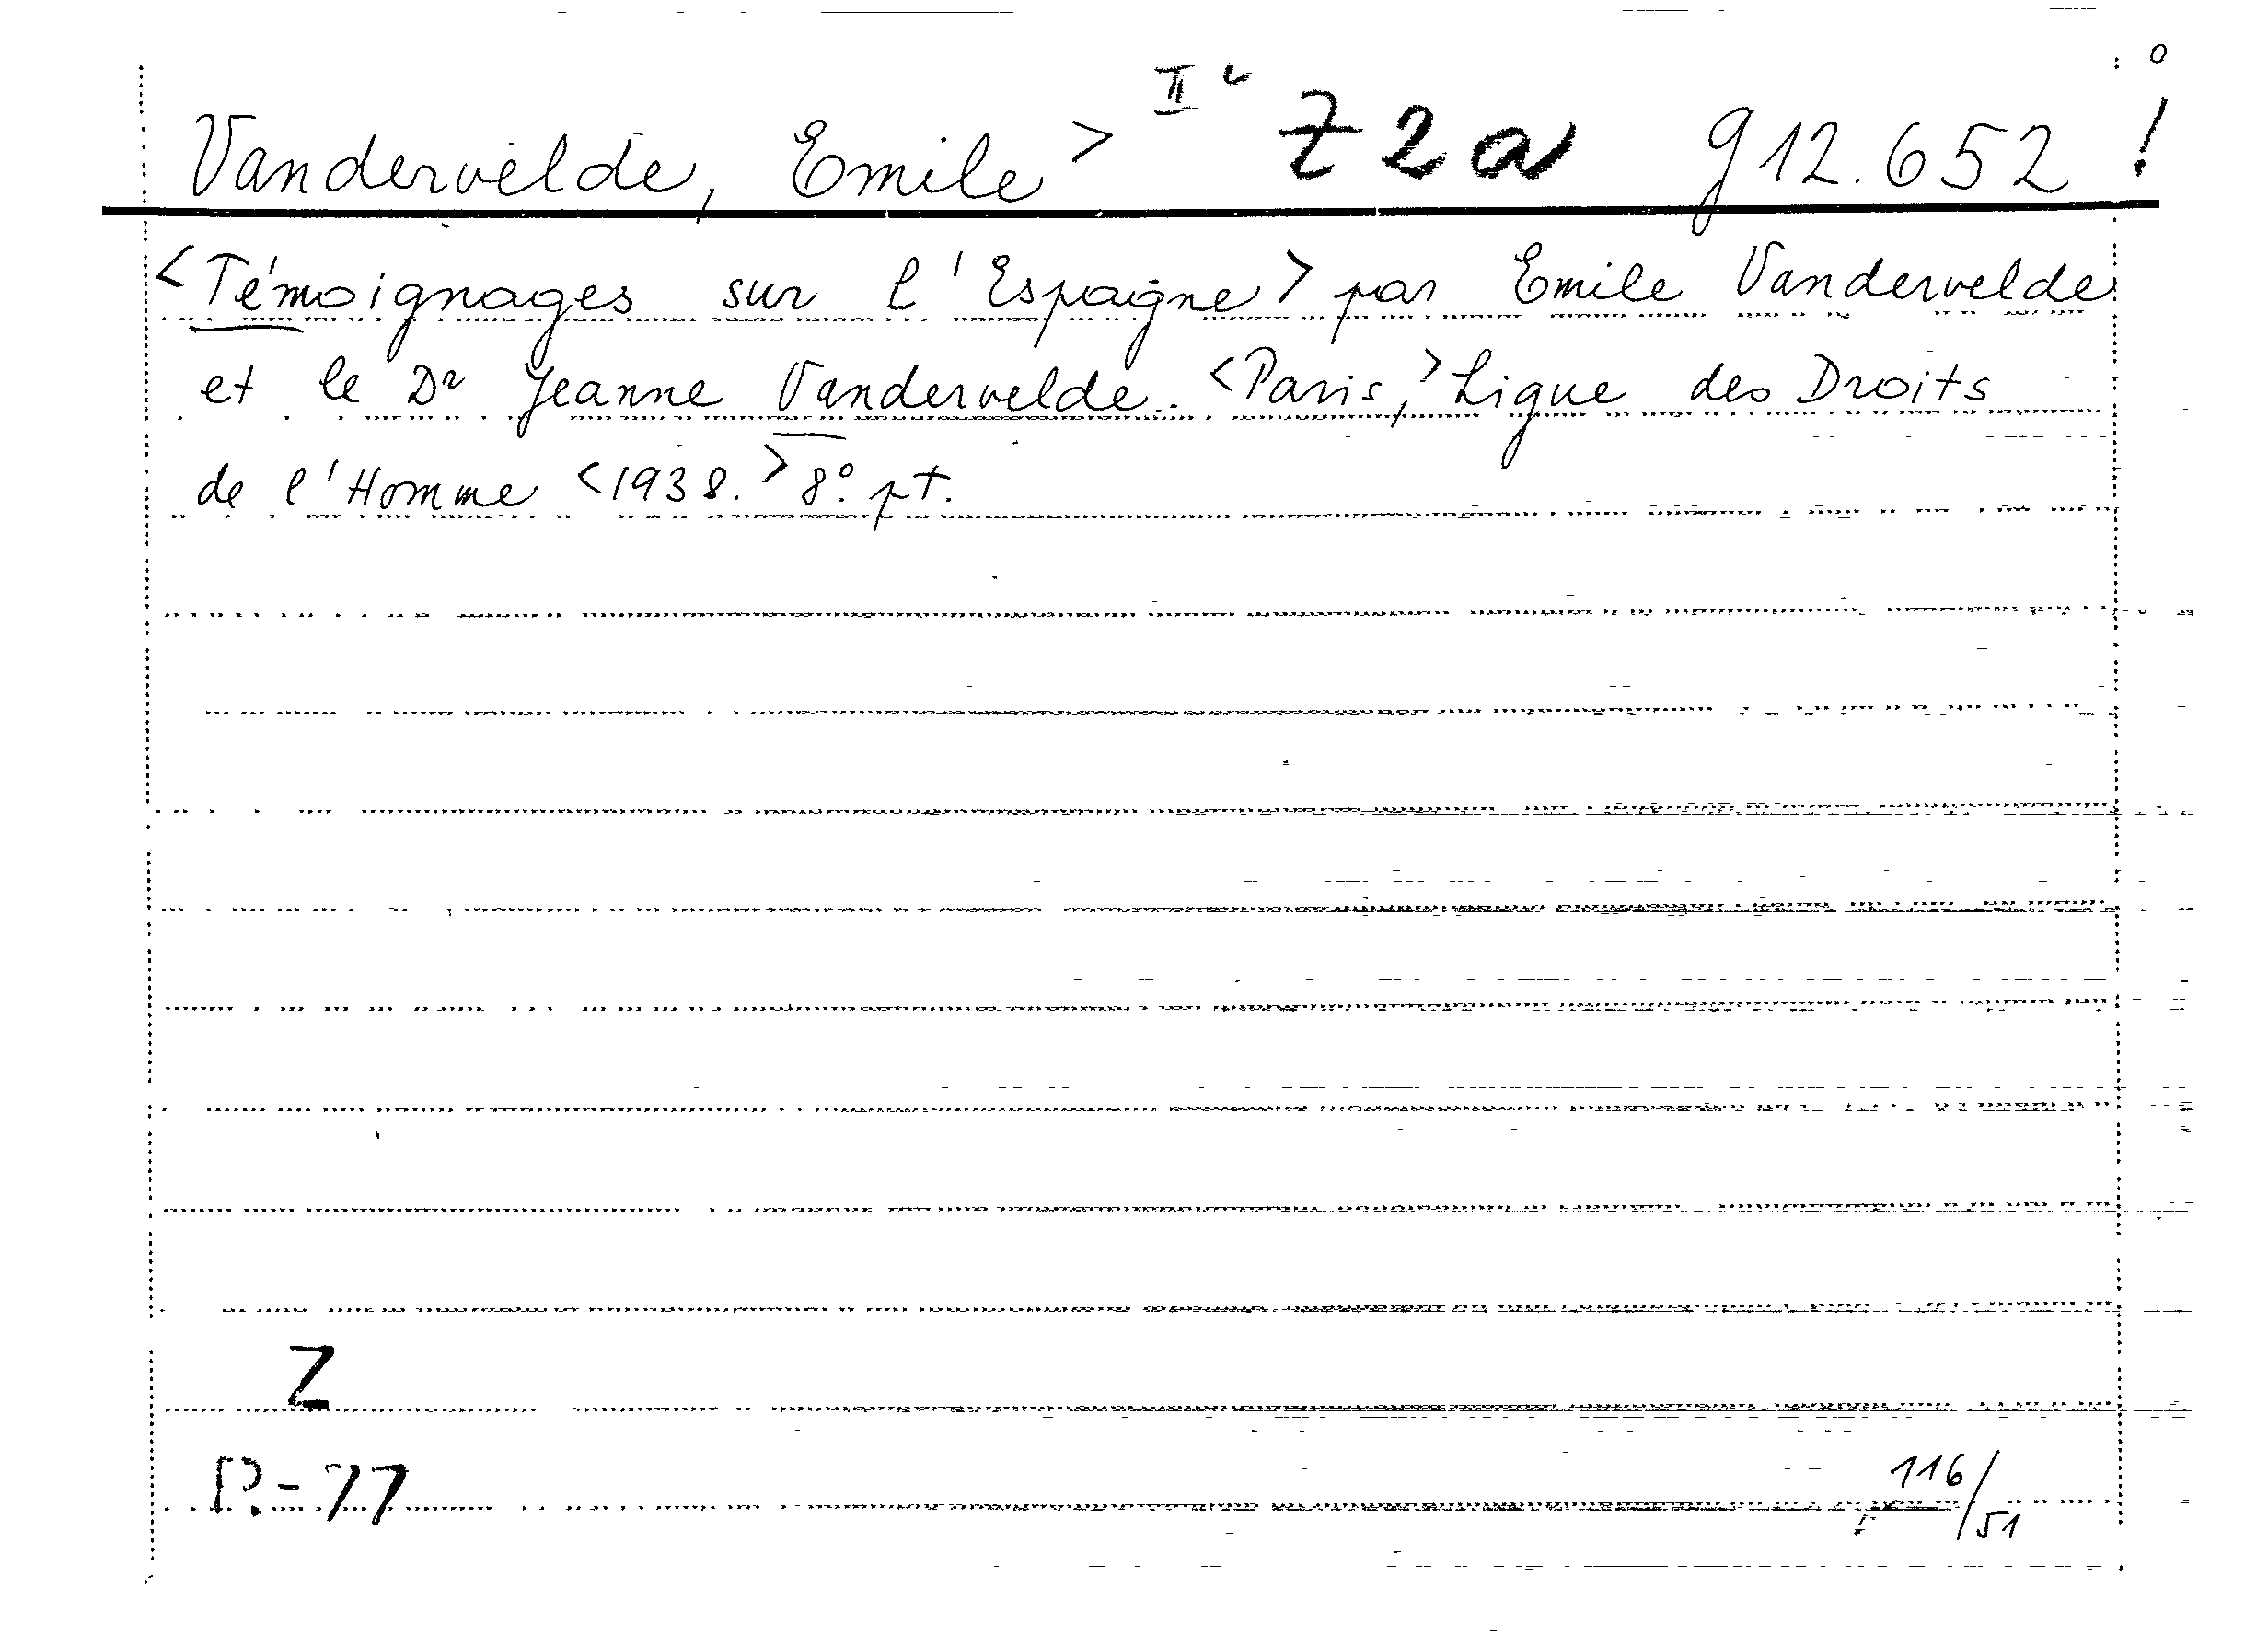 Vandervelde, Emile > II Z2a g12.652 !
<Témoignages sur l'Espagne> par Emile Vandervelde
et le Dr Jeanne Vandervelde. <Paris,> Ligue des Droits
de l'Homme <1938.> 8° pt.
Z
P.-77
116/51